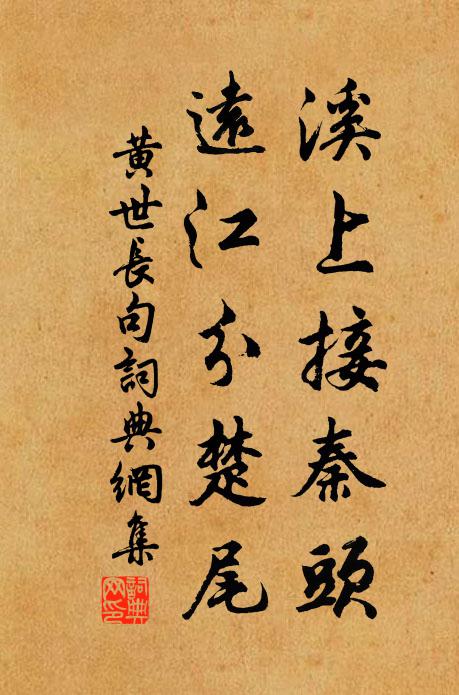 溪上接秦頭
遠江分楚尾
黄世長句詞典網集
詞典
网印